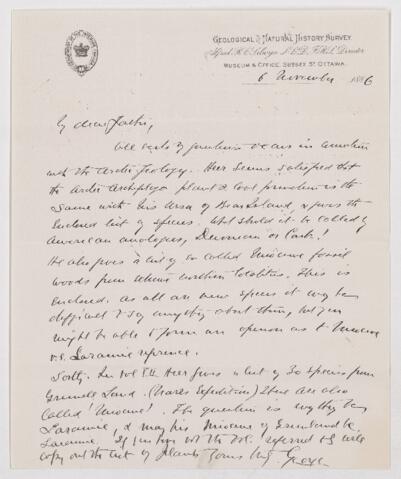 GEOLOGICAL & NATURAL HISTORY SURVEY.
Alfred R. C. Selwyn, L.L.D., F.R.S., Director
MUSEUM & OFFICE, SUSSEX ST. OTTAWA.
6 November 1886
My dear Father,
All sorts of questions occur in connection
with the Arctic Geology. Heer seems satisfied that
the Arctic Archipelago plant & coal formation is the
same with his Ursa of Bear Island, & gives the
enclosed list of species. What should it be called by
American analogies, Devonian or Carb!
He also gives a list of so called Miocene fossil
woods from northern localities. This is
enclosed. As all are new species it may be
difficult to say anything about them, but you
might be able to form an opinion as to Miocene
v.s. Laramie reference.
Lastly. In Vol. Heer gives a list of 30 species from
Grinnell Land (Nares Expedition) These are also
called "Miocene"! The question is may they be
Laramie, & may his Miocene of Greenland be
Laramie. If you have not the vol. referred to I will
copy out the list of plants. Yours George